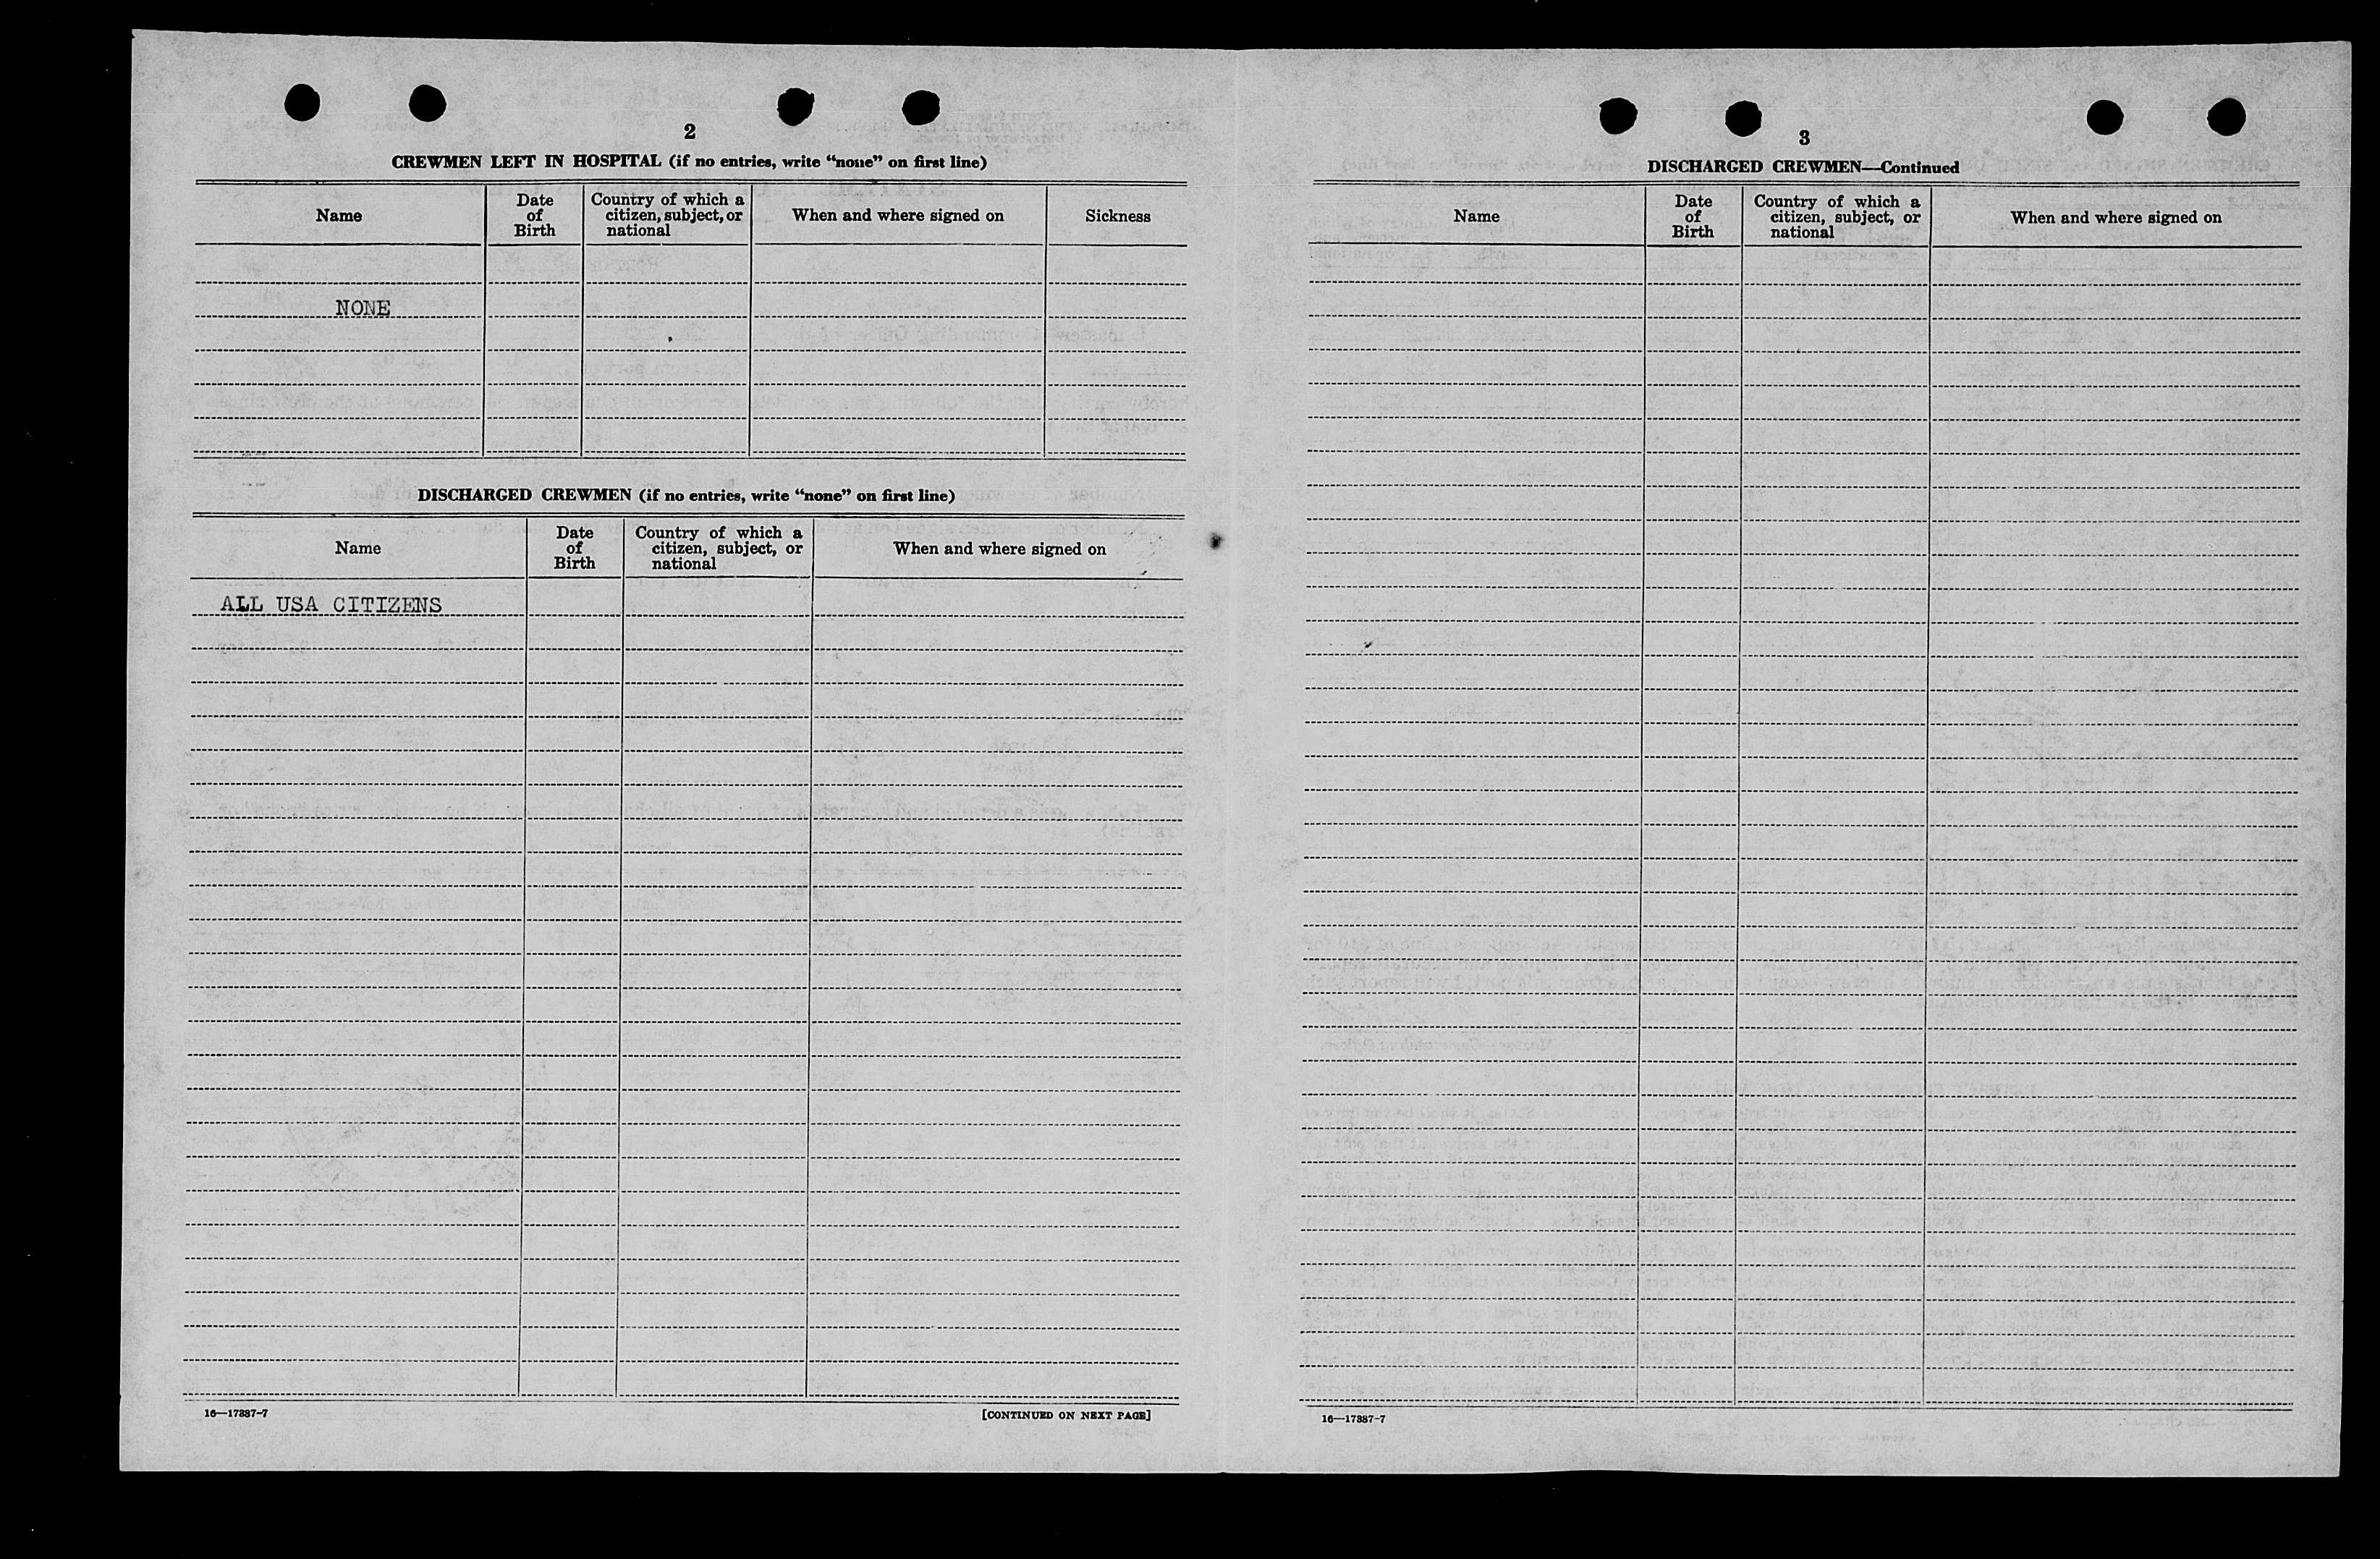 2
CREWMEN LEFT IN HOSPITAL (if no entries, write “none” on first line)
Name
Date of Birth
Country of which a citizen, subject, or national
When and where signed on
Sickness
NONE
DISCHARGED CREWMEN (if no entries, write “none” on first line)
Name
Date of Birth
Country of which a citizen, subject, or national
When and where signed on
ALL USA CITIZENS
16—17387-7
[CONTINUED ON NEXT PAGE]
3
DISCHARGED CREWMEN—Continued
Name
Date of Birth
Country of which a citizen, subject, or national
When and where signed on
16—17387-7